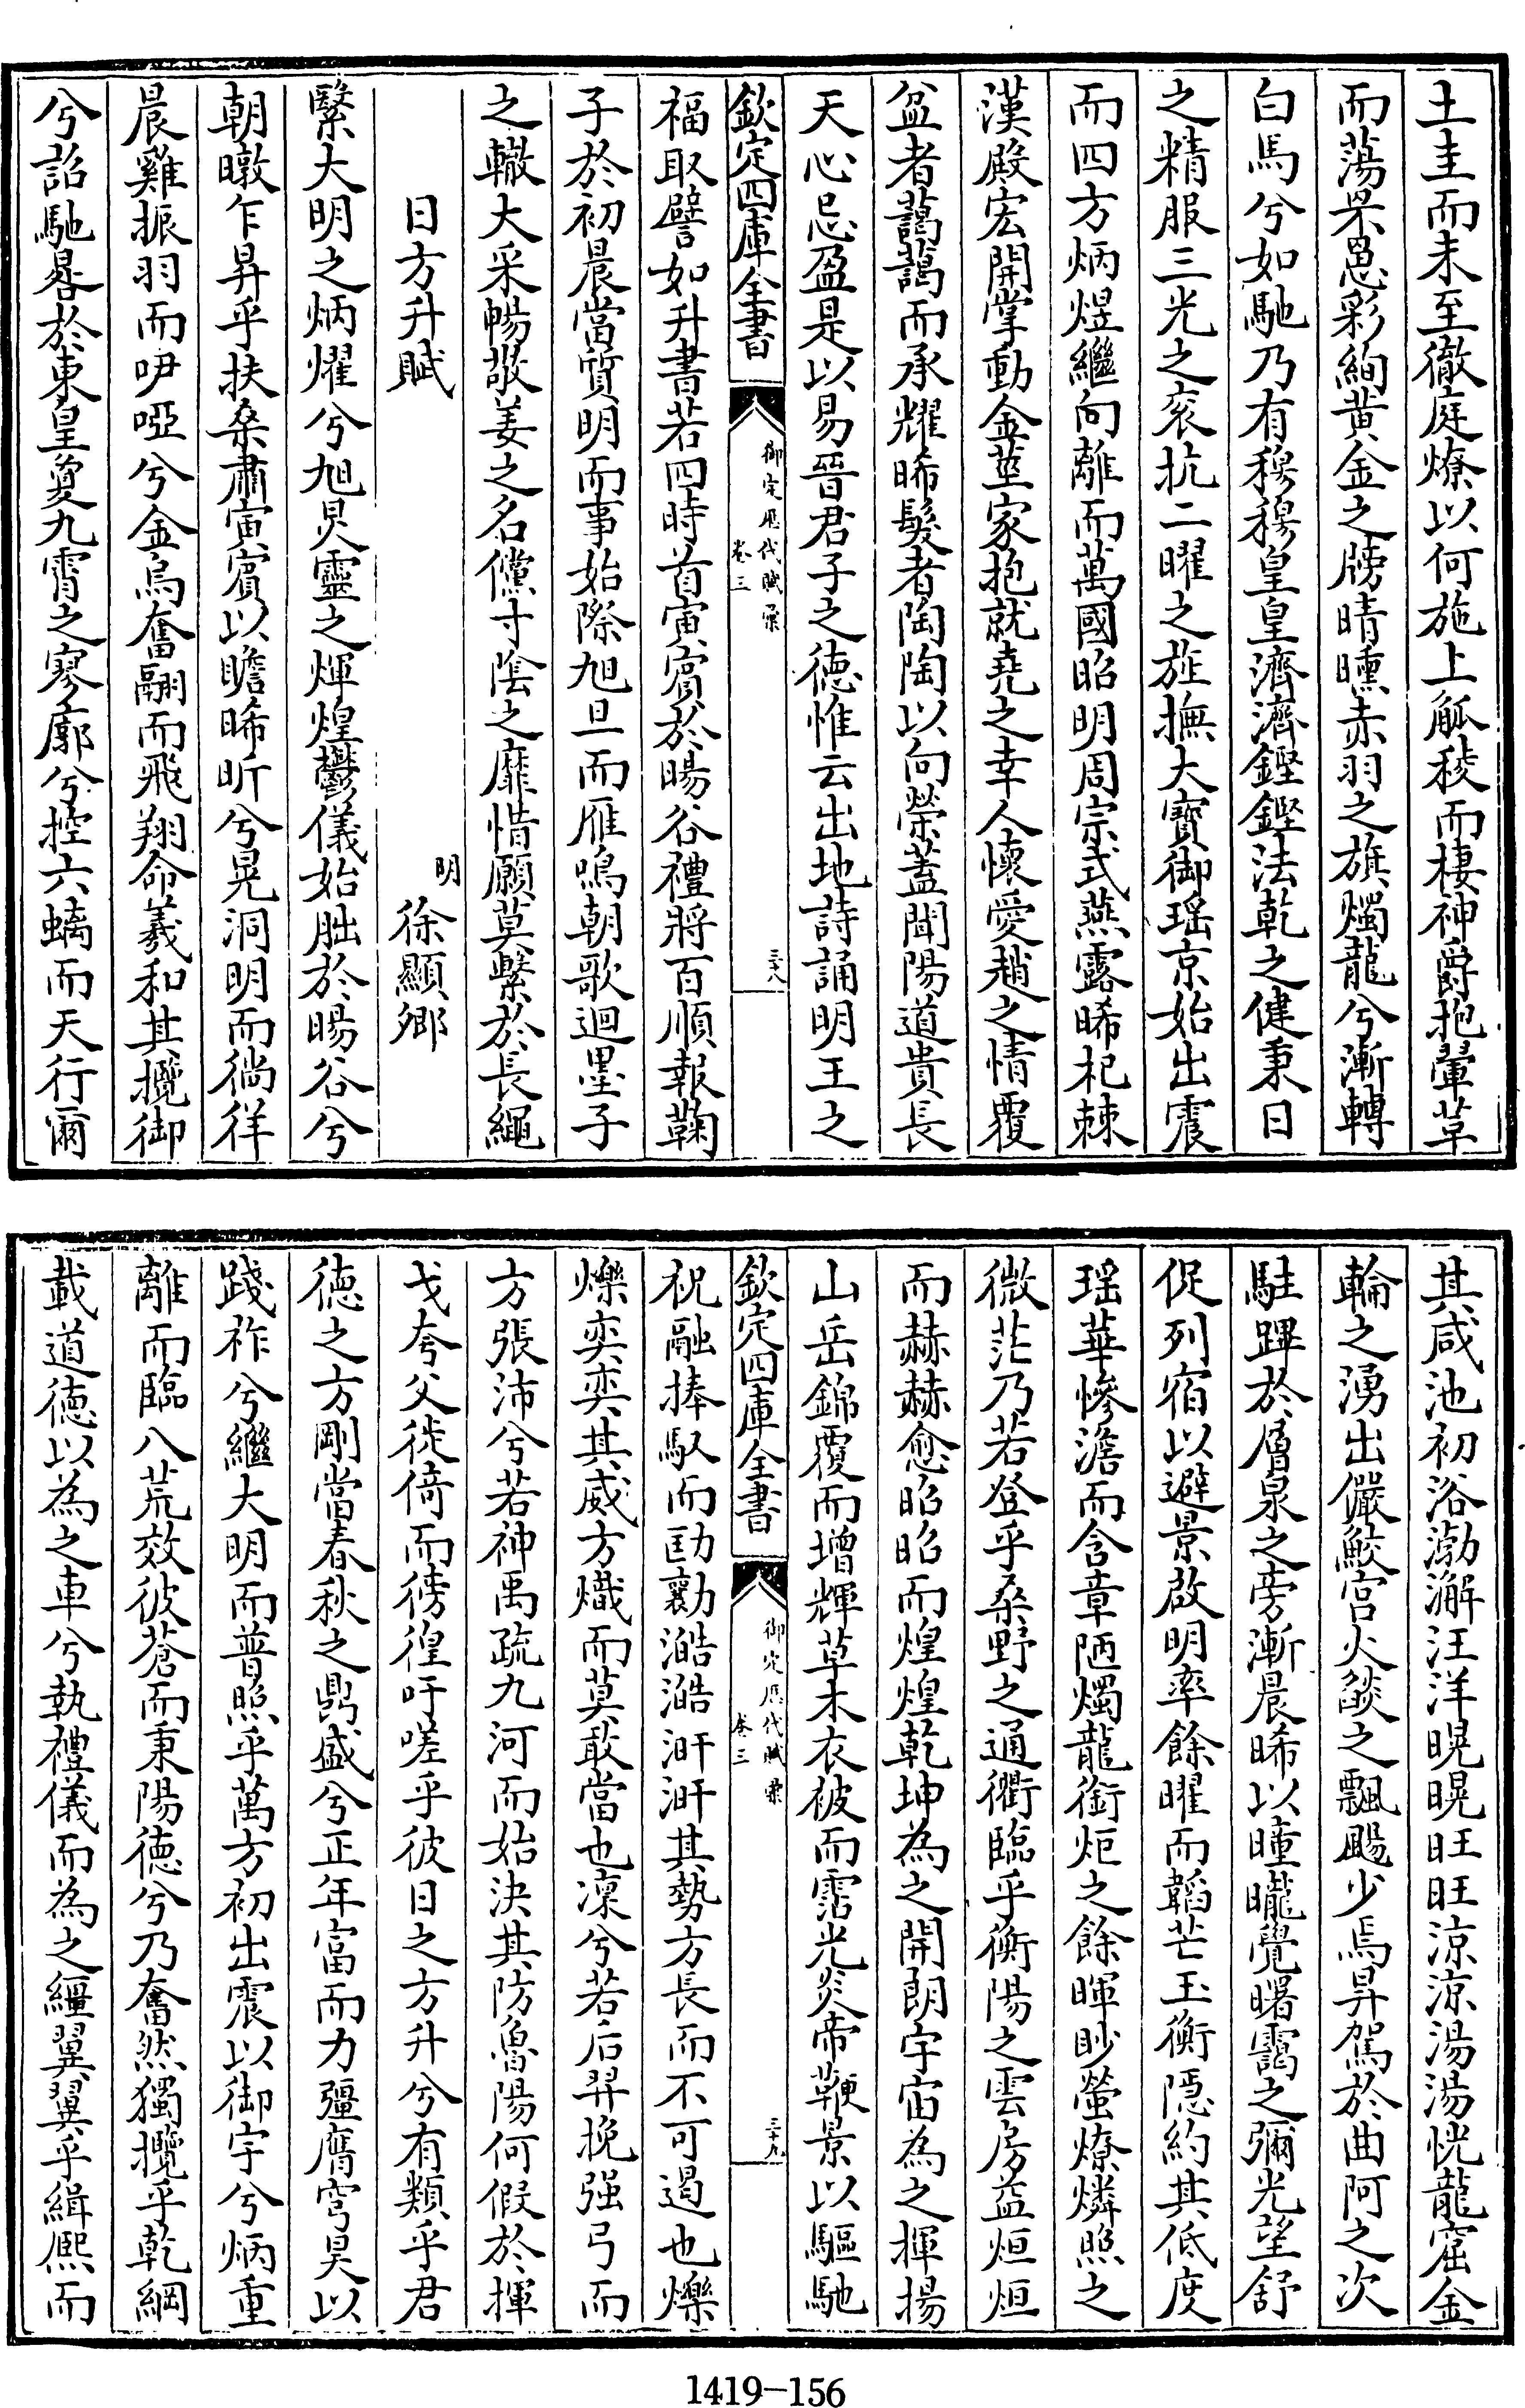 土圭而未至徹庭燎以何施上觚稜而棲神爵抱翬革
而蕩罘罳彩絢黄金之牓晴曛赤羽之旗燭龍兮漸轉
白馬兮如馳乃有穆穆皇皇濟濟鏗鏗法乾之健秉日
之精服三光之衮抗二曜之旌撫大寶御瑶京始出震
而四方炳煜繼向離而萬國昭明周宗式燕露晞杞棘
漢殿宏開掌動金莖家抱就堯之幸人懷愛趙之情覆
盆者藹藹而承耀晞髮者陶陶以向榮蓋聞陽道貴長
天心忌盈是以易晉君子之德惟云出地詩誦明王之
欽定四庫全書
御定歴代賦彙
卷三
三十八
福取譬如升書若四時首寅賓於暘谷禮將百順報鞠
子於初晨當質明而事始際旭旦而雁鳴朝歌迴墨子
之轍大采暢敬姜之名儻寸陰之靡惜願莫繫於長繩
日方升賦
明 徐顯卿
繄大明之炳燿兮旭炅靈之煇煌鬱儀始朏於暘谷兮
朝暾乍昇乎扶桑肅寅賓以瞻晞昕兮晃洞明而徜徉
晨雞振羽而咿啞兮金烏奮翮而飛翔命羲和其攬御
兮詔馳晷於東皇夐九霄之寥廓兮控六螭而天行爾
其咸池初浴渤澥汪洋晃晃旺旺涼涼湯湯恍龍窟金
輪之湧出儼鮫宫火燄之飄颺少焉昇駕於曲阿之次
駐蹕於層泉之旁漸晨晞以曈曨覺曙靄之彌光望舒
促列宿以避景啟明率餘曜而韜芒玉衡隱約其低度
瑶華慘澹而含章陋燭龍銜炬之餘暉眇螢燎燐照之
微茫乃若登乎桑野之通衢臨乎衡陽之雲房益烜烜
而赫赫愈昭昭而煌煌乾坤為之開朗宇宙為之揮揚
山岳錦覆而增輝草木衣被而霑光炎帝鞭景以驅馳
欽定四庫全書
御定歴代賦彙
卷三
三十九
祝融捧馭而劻勷澔澔汗汗其勢方長而不可遏也爍
爍奕奕其威方熾而莫敢當也凜兮若后羿挽强弓而
方張沛兮若神禹疏九河而始決其防魯陽何假於揮
戈夸父徙倚而徬徨吁嗟乎彼日之方升兮有類乎君
德之方剛當春秋之鼎盛兮正年富而力彊膺穹昊以
踐祚兮繼大明而普照乎萬方初出震以御宇兮炳重
離而臨八荒效彼蒼而秉陽德兮乃奮然獨攬乎乾綱
載道德以為之車兮執禮儀而為之繮翼翼乎緝熈而
1419-156